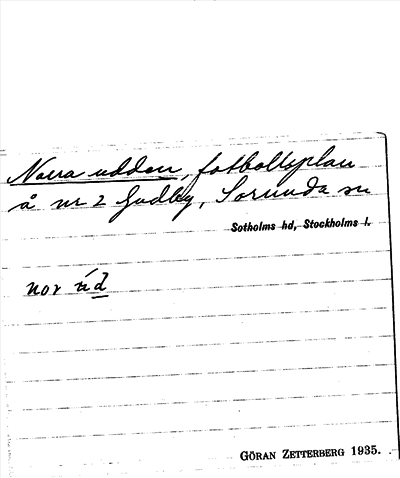 Norra udden, fotbollsplan
å nr 2 Gudby, Sorunda sn
Sotholms hd, Stockholms l.
nor
GÖRAN ZETTERBERG 1935.